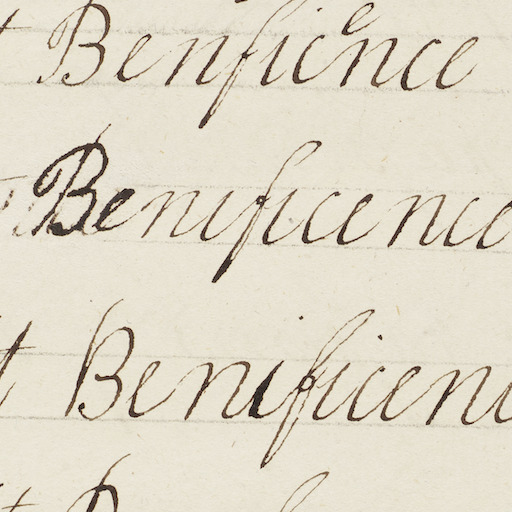 t Benficence
Benificence
t Benificenc